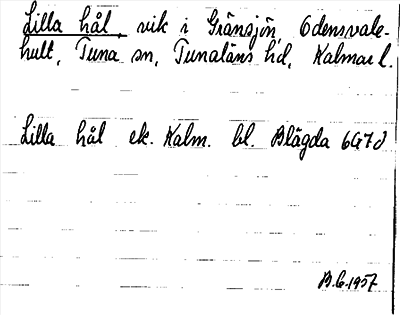 Lilla hål, vik i Gränsjön, Odensvale-
hult, Tuna sn, Tunaläns hd, Kalmar l.
Lilla hål ek. Kalm. bl. Blägda 6G7d
B.C. 1957